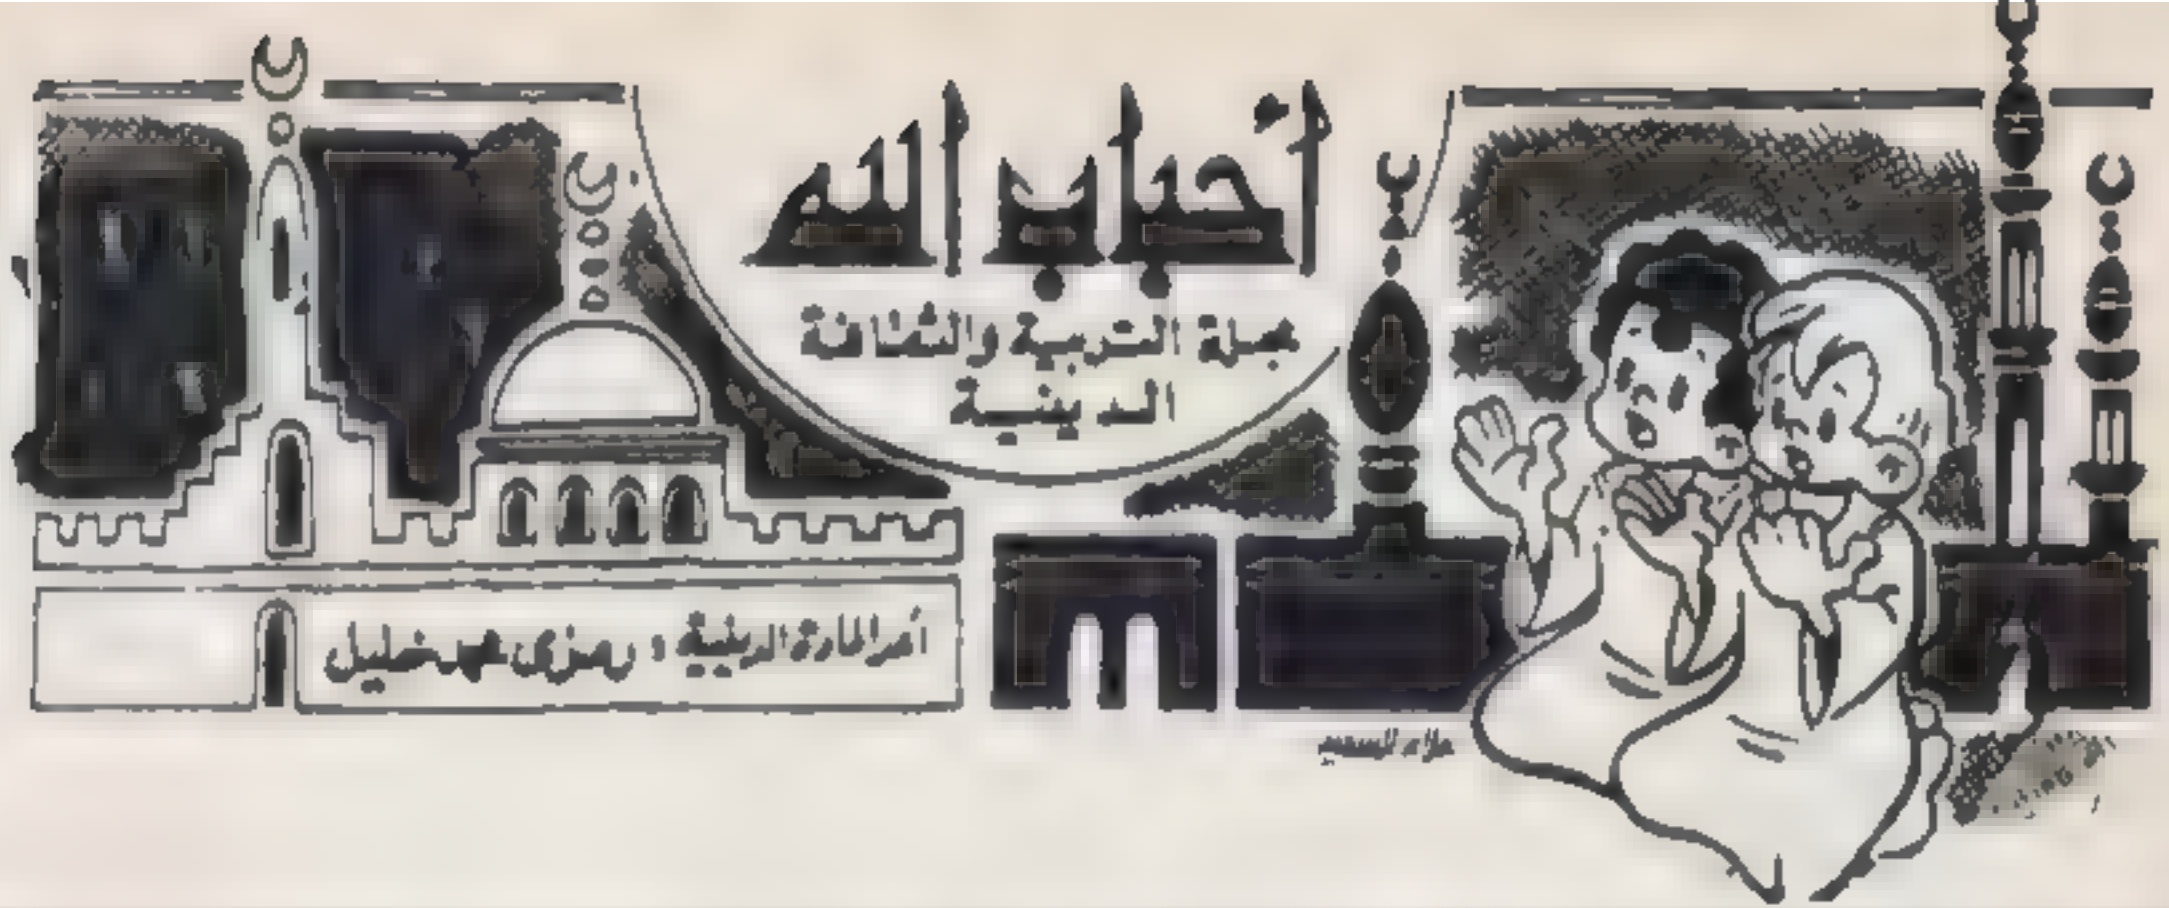 أحباب الله
مجلة التربية والثقافة
الدينية
أمر المادة الدينية : رمزى محمد خليل